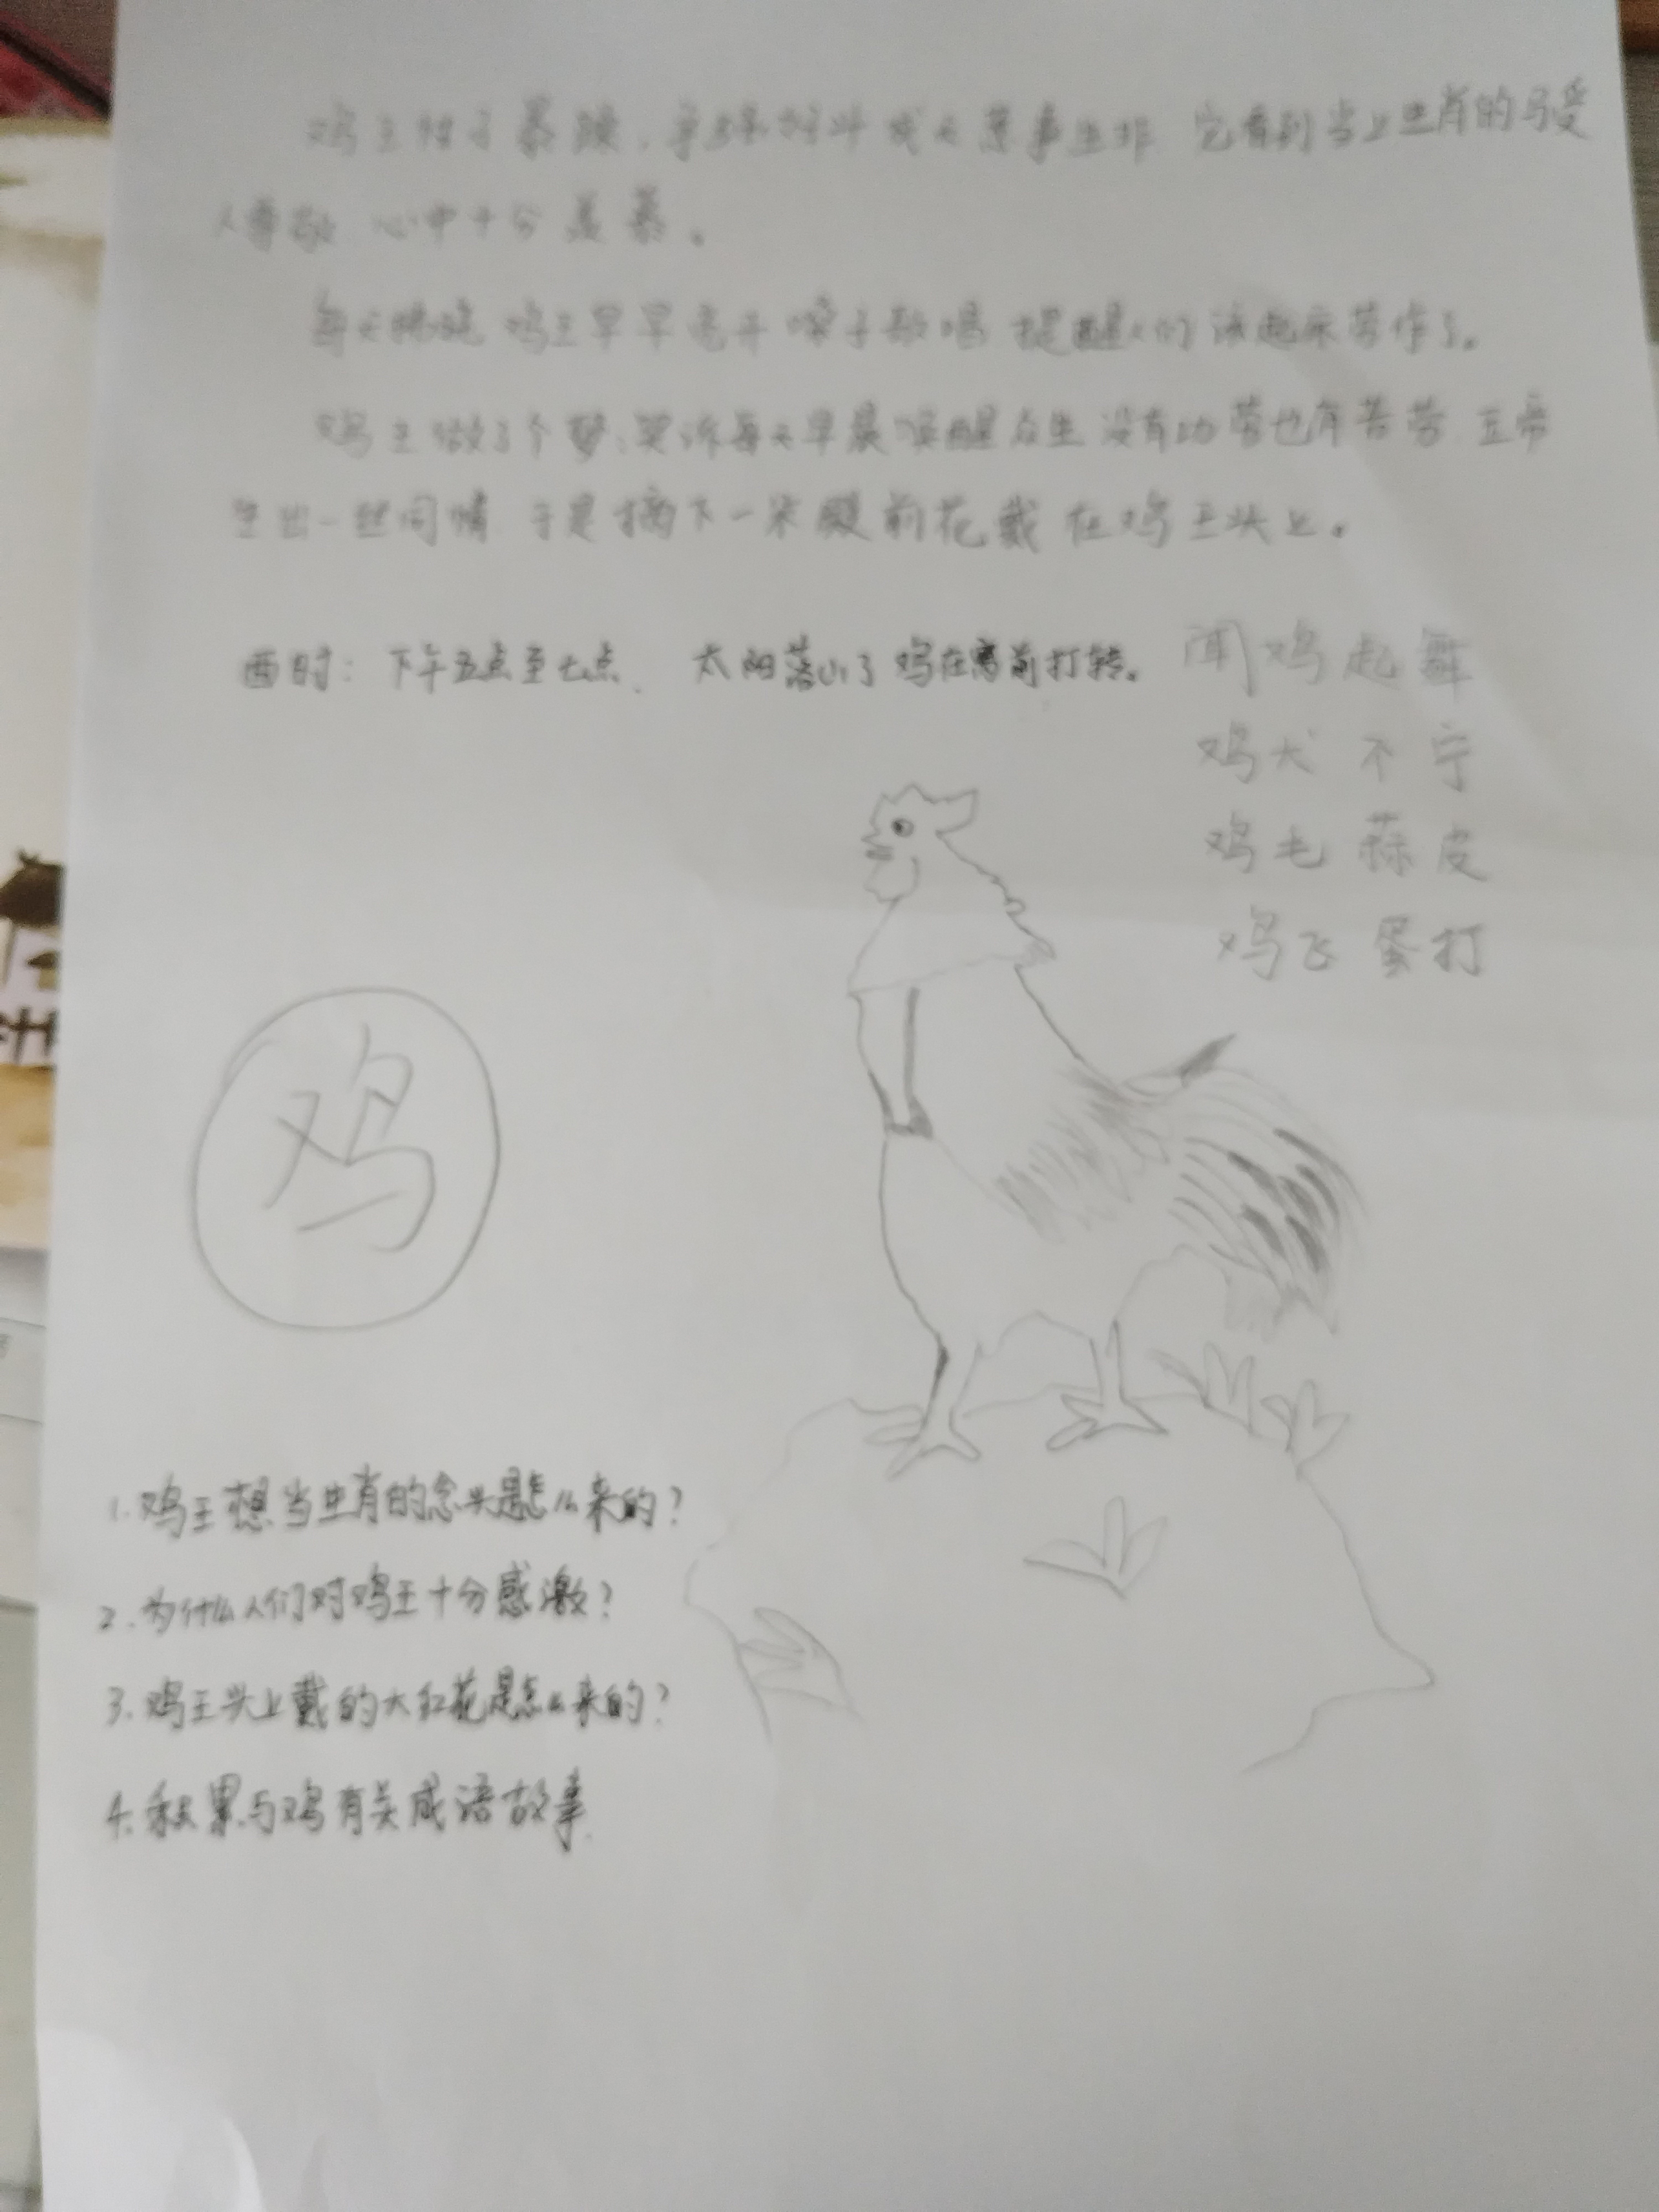 鸡王性子暴躁，争强好斗成天惹事生非 它看到当上生肖的马受
人尊敬 心中十分羡慕。
每天拂晓 鸡王早早亮开嗓子歌唱 提醒人们该起床劳作了。
鸡王做了个梦，哭诉每天早晨唤醒众生 没有功劳也有苦劳 玉帝
生出一丝同情 于是摘下一朵殿前花戴在鸡王头上。
酉时：下午五点至七点、 太阳落山了 鸡在窝前打转。
闻鸡起舞
鸡犬不宁
鸡毛蒜皮
鸡飞蛋打
鸡
1.鸡王想当生肖的念头是怎么来的？
2.为什么人们对鸡王十分感激？
3.鸡王头上戴的大红花是怎么来的？
4.积累与鸡有关成语故事.